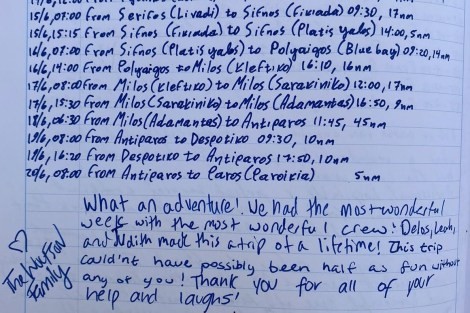 15/6, 07:00 From Serifos (Livadi) to Sifnos (Fikiada) 09:30, 17nm
15/6, 15:15 From Sifnos (Fikiada) to Sifnos (Platis yalos) 14:00, 5nm
16/6, 07:00 From Sifnos (Platis yalos) to Polyaigos (Blue bay) 09:20, 14nm
16/6, 14:00 From Polyaigos to Milos (Kleftiko) 16:10, 16nm
17/6, 08:00 From Milos (Kleftiko) to Milos (Sarakiniko) 12:00, 17nm
17/6, 15:30 From Milos (Sarakiniko) to Milos (Adamantas) 16:50, 9nm
18/6, 06:30 From Milos (Adamantas) to Antiparos 11:45, 45nm
19/6, 08:00 From Antiparos to Despotiko 09:30, 10nm
19/6, 16:20 From Despotiko to Antiparos 17:50, 10nm
20/6, 08:00 From Antiparos to Paros (Paroikia) 5nm
What an adventure! We had the most wonderful
week with the most wonderful crew! Delos, Leah,
and Judith made this a trip of a lifetime! This trip
could'nt have possibly been half as fun without
any of you! Thank you for all of your
help and laughs!
♡ The
Family